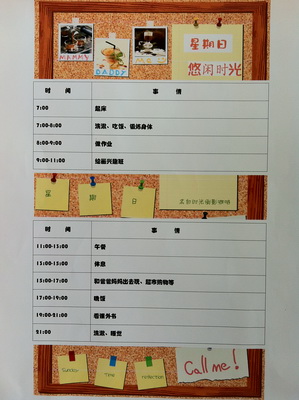 MAMMY DADDY
星期日
悠闲时光
时 间 事 情
7:00 起床
7:00-8:00 洗漱、吃饭、锻炼身体
8:00-9:00 做作业
9:00-11:00 绘画兴趣班
星 期 日
时 间 事 情
11:00-13:00 午餐
13:00-15:00 休息
15:00-17:00 和爸爸妈妈出去玩、超市购物等
17:00-19:00 晚饭
19:00-21:00 看课外书
21:00 洗漱、睡觉
Call me!
Sunday Time reflection